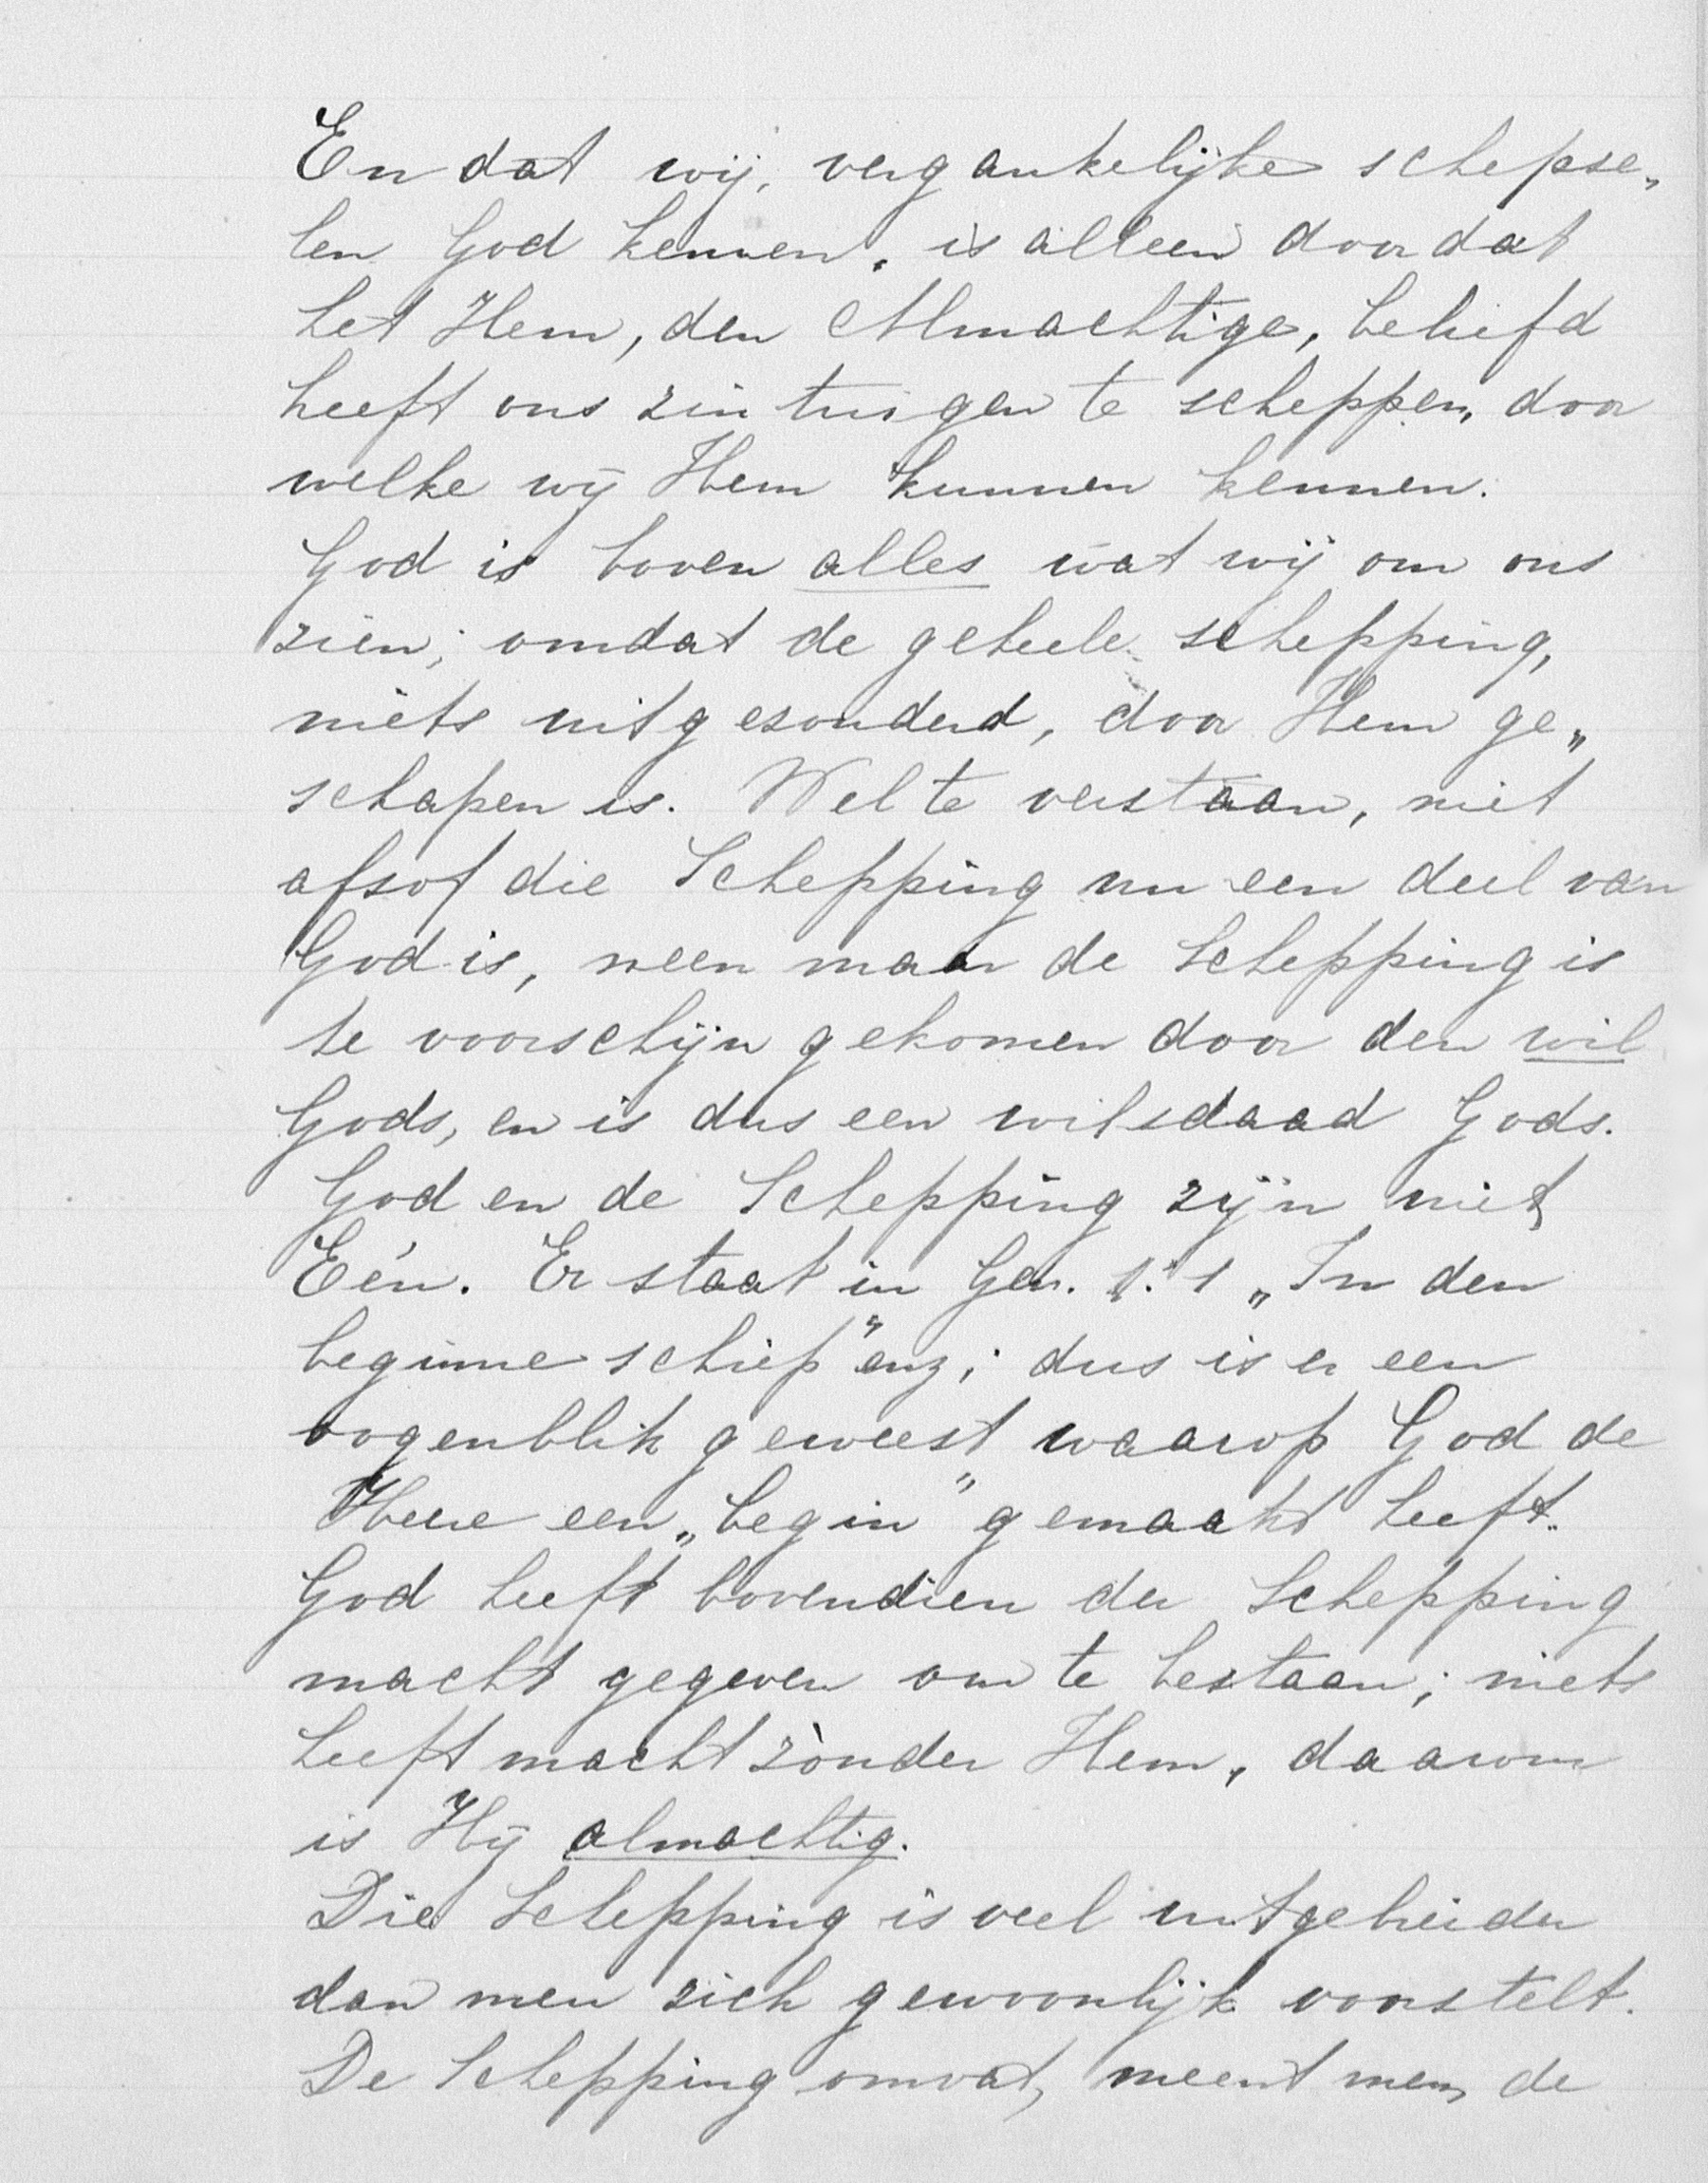 En dat wij, vergankelijke schepse„
len God kennen, is alleen doordat
het Hem, den Almachtige, beliefd
heeft ons zintuigen te scheppen, door
welke wij Hem kunnen kennen.
God is boven alles wat wij om ons
zien; omdat de geheele schepping,
niets uitgezonderd, door Hem ge„
schapen is. Wel te verstaan, niet
alsof die Schepping nu een deel van
God is, neen maar de Schepping is
te voorschijn gekomen door den wil
Gods, en is dus een wilsdaad Gods.
God en de Schepping zijn niet
Eén. Er staat in Gen. 1:1 „In den
beginne schiep" enz; dus is er een
oogenblik geweest waarop God de
Heere een „begin" gemaakt heeft.
God heeft bovendien der Schepping
macht gegeven om te bestaan; niets
heeft macht zònder Hem, daarom
is Hij almachtig.
Die Schepping is veel uitgebreider
dan men zich gewoonlijk voorstelt.
De Schepping omvat, meent men, de